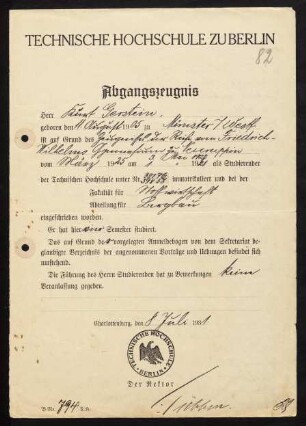 TECHNISCHE HOCHSCHULE ZU BERLIN
82
Abgangszeugnis
Herr Kurt Gerstein,
geboren den 11. August 05 zu Münster i/Westf.
ist auf Grund des Zeugnisses der Reife vom Friedrich-
Wilhelms Gymnasium zu Neuruppin
vom März 1925 am 3. 19 als Studierender
der Technischen Hochschule unter Nr. immatrikuliert und bei der
Fakultät für Stoffwirtschaft
Abteilung für Bergbau
eingeschrieben worden.
Er hat hier Semester studiert.
Das auf Grund der vorgelegten Anmeldebogen von dem Sekretariat be-
glaubigte Verzeichnis der angenommenen Vorträge und Uebungen befindet sich
umstehend.
Die Führung des Herrn Studierenden hat zu Bemerkungen keine
Veranlassung gegeben.
Charlottenburg, den 8. Juli 1931
TECHNISCHE HOCHSCHULE BERLIN
Der Rektor
B.Nr. 794